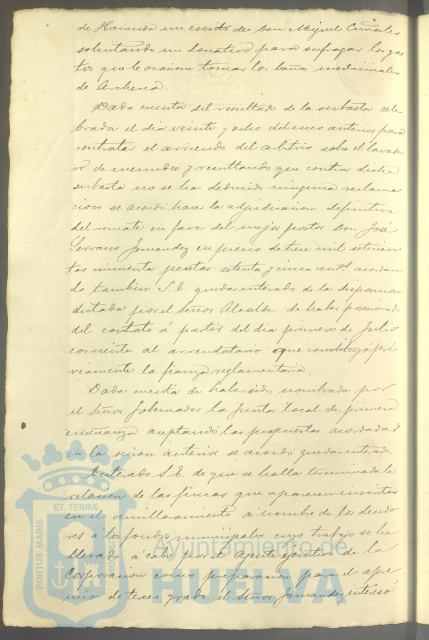 de Hacienda un escrito de Don Miguel Canales
solicitando un donativo para sufragar los gas
tos que le ocasione tomar los baños medicinales
de Archena.
Dada cuenta del resultado de la subasta cele
brada el dia veinte y ocho del mes anterior para
contratar el arriendo del arbitrio sobre el lavade
ro de menudos y resultando que contra dicha
subasta no se ha deducido ninguna reclama
cion se acordó hacer la adjudicacion definitiva
del remate en favor del mejor postor Don José
Serrano Fernandez en precio de tres mil setecien
tas cincuenta pesetas setenta y cinco cents acordan
do tambien S.E. quedar enterado de la disposicion
dictada por el Señor Alcalde de haber posesionado
del contrato á partir del dia primero de Julio
corriente al arrendatario que constituyó pré
viamente la fianza reglamentaria.
Dada cuenta de haber sido nombrada por
el Señor Gobernador la Junta local de primera
enseñanza aceptando las propuestas acordadas
en la sesion anterior se acordó quedar enterado.
Enterado S.E. de que se halla terminada la
relacion de las fincas que aparecen inscritas
en el amillaramiento á nombre de los deudo
res a los fondos municipales cuyo trabajo se ha
llevado á cabo por el Agente ejecutivo de la
Corporacion como preparacion para el apre
mio de tercer grado el Señor Fernandez interesó
PORTUS MARIS ET TERRÆ
Ayuntamiento de
HUELVA